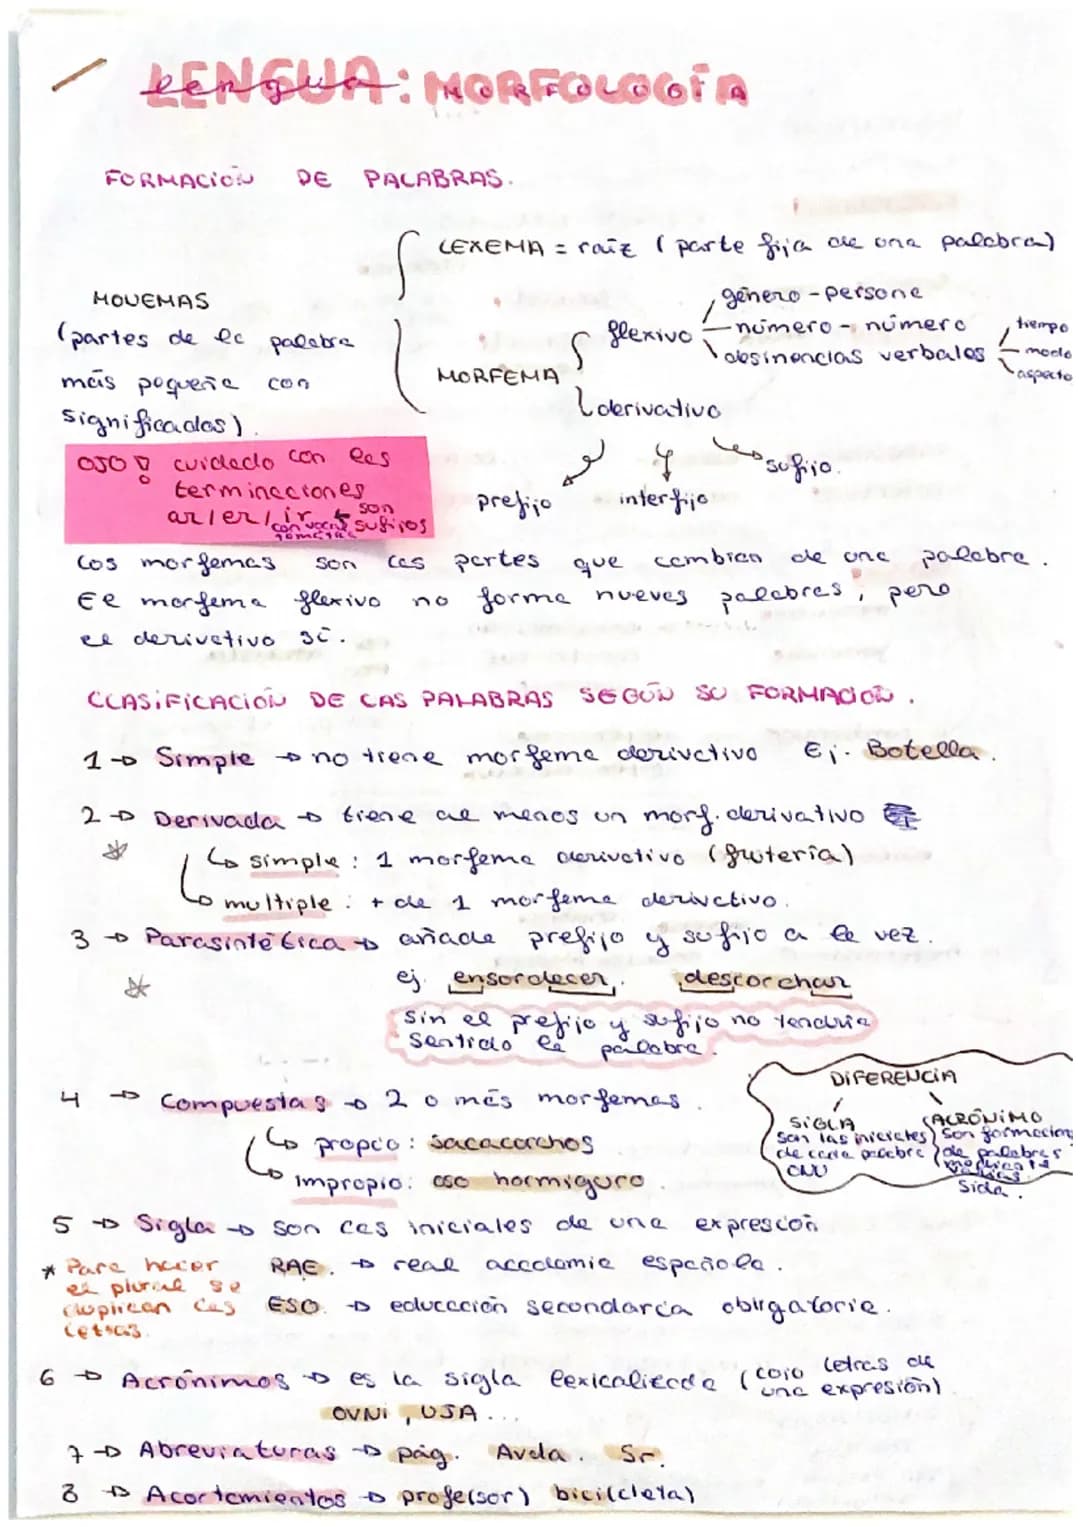 LENGUA: MORFOLOGÍA
FORMACIÓN DE PALABRAS.
MONEMAS
(partes de la palabra
más pequeña con
significados).
LEXEMA = raíz (parte fija de una palabra)
MORFEMA
flexivo
género - persona
número - número
desinencias verbales
tiempo
modo
aspecto
derivativo
prefijo
interfijo
sufijo.
OJO! cuidado con las
terminaciones
ar/er/ir son
con vocal sufijos
temática
Los morfemas son las partes que cambian de una palabra.
El morfema flexivo no forma nuevas palabras, pero
el derivativo sí.
CLASIFICACIÓN DE LAS PALABRAS SEGÚN SU FORMACIÓN.
1 → Simple → no tiene morfema derivativo Ej. Botella.
2 → Derivada → tiene al menos un morf. derivativo
simple: 1 morfema derivativo (frutería)
multiple: + de 1 morfema derivativo.
3 → Parasintética → añade prefijo y sufijo a la vez.
ej. ensordecer, descorchar
sin el prefijo y sufijo no tendría
sentido la palabra.
4 → Compuestas → 2 o más morfemas.
propio: sacacorchos
impropio: oso hormiguero.
DIFERENCIA
SIGLA
son las iniciales
de cada palabra
ONU
ACRÓNIMO
Son formación
de palabras
Sida.
5 → Sigla → son las iniciales de una expresión
RAE. → real academia española.
ESO → educación secundaria obligatoria.
* Para hacer
el plural se
duplican las
letras.
6 → Acrónimos → es la sigla lexicalizada (cojo letras de
una expresión)
OVNI, USA...
7 → Abreviaturas → pág. Avda. Sr.
8 → Acortamientos → profe(sor) bici(cleta)